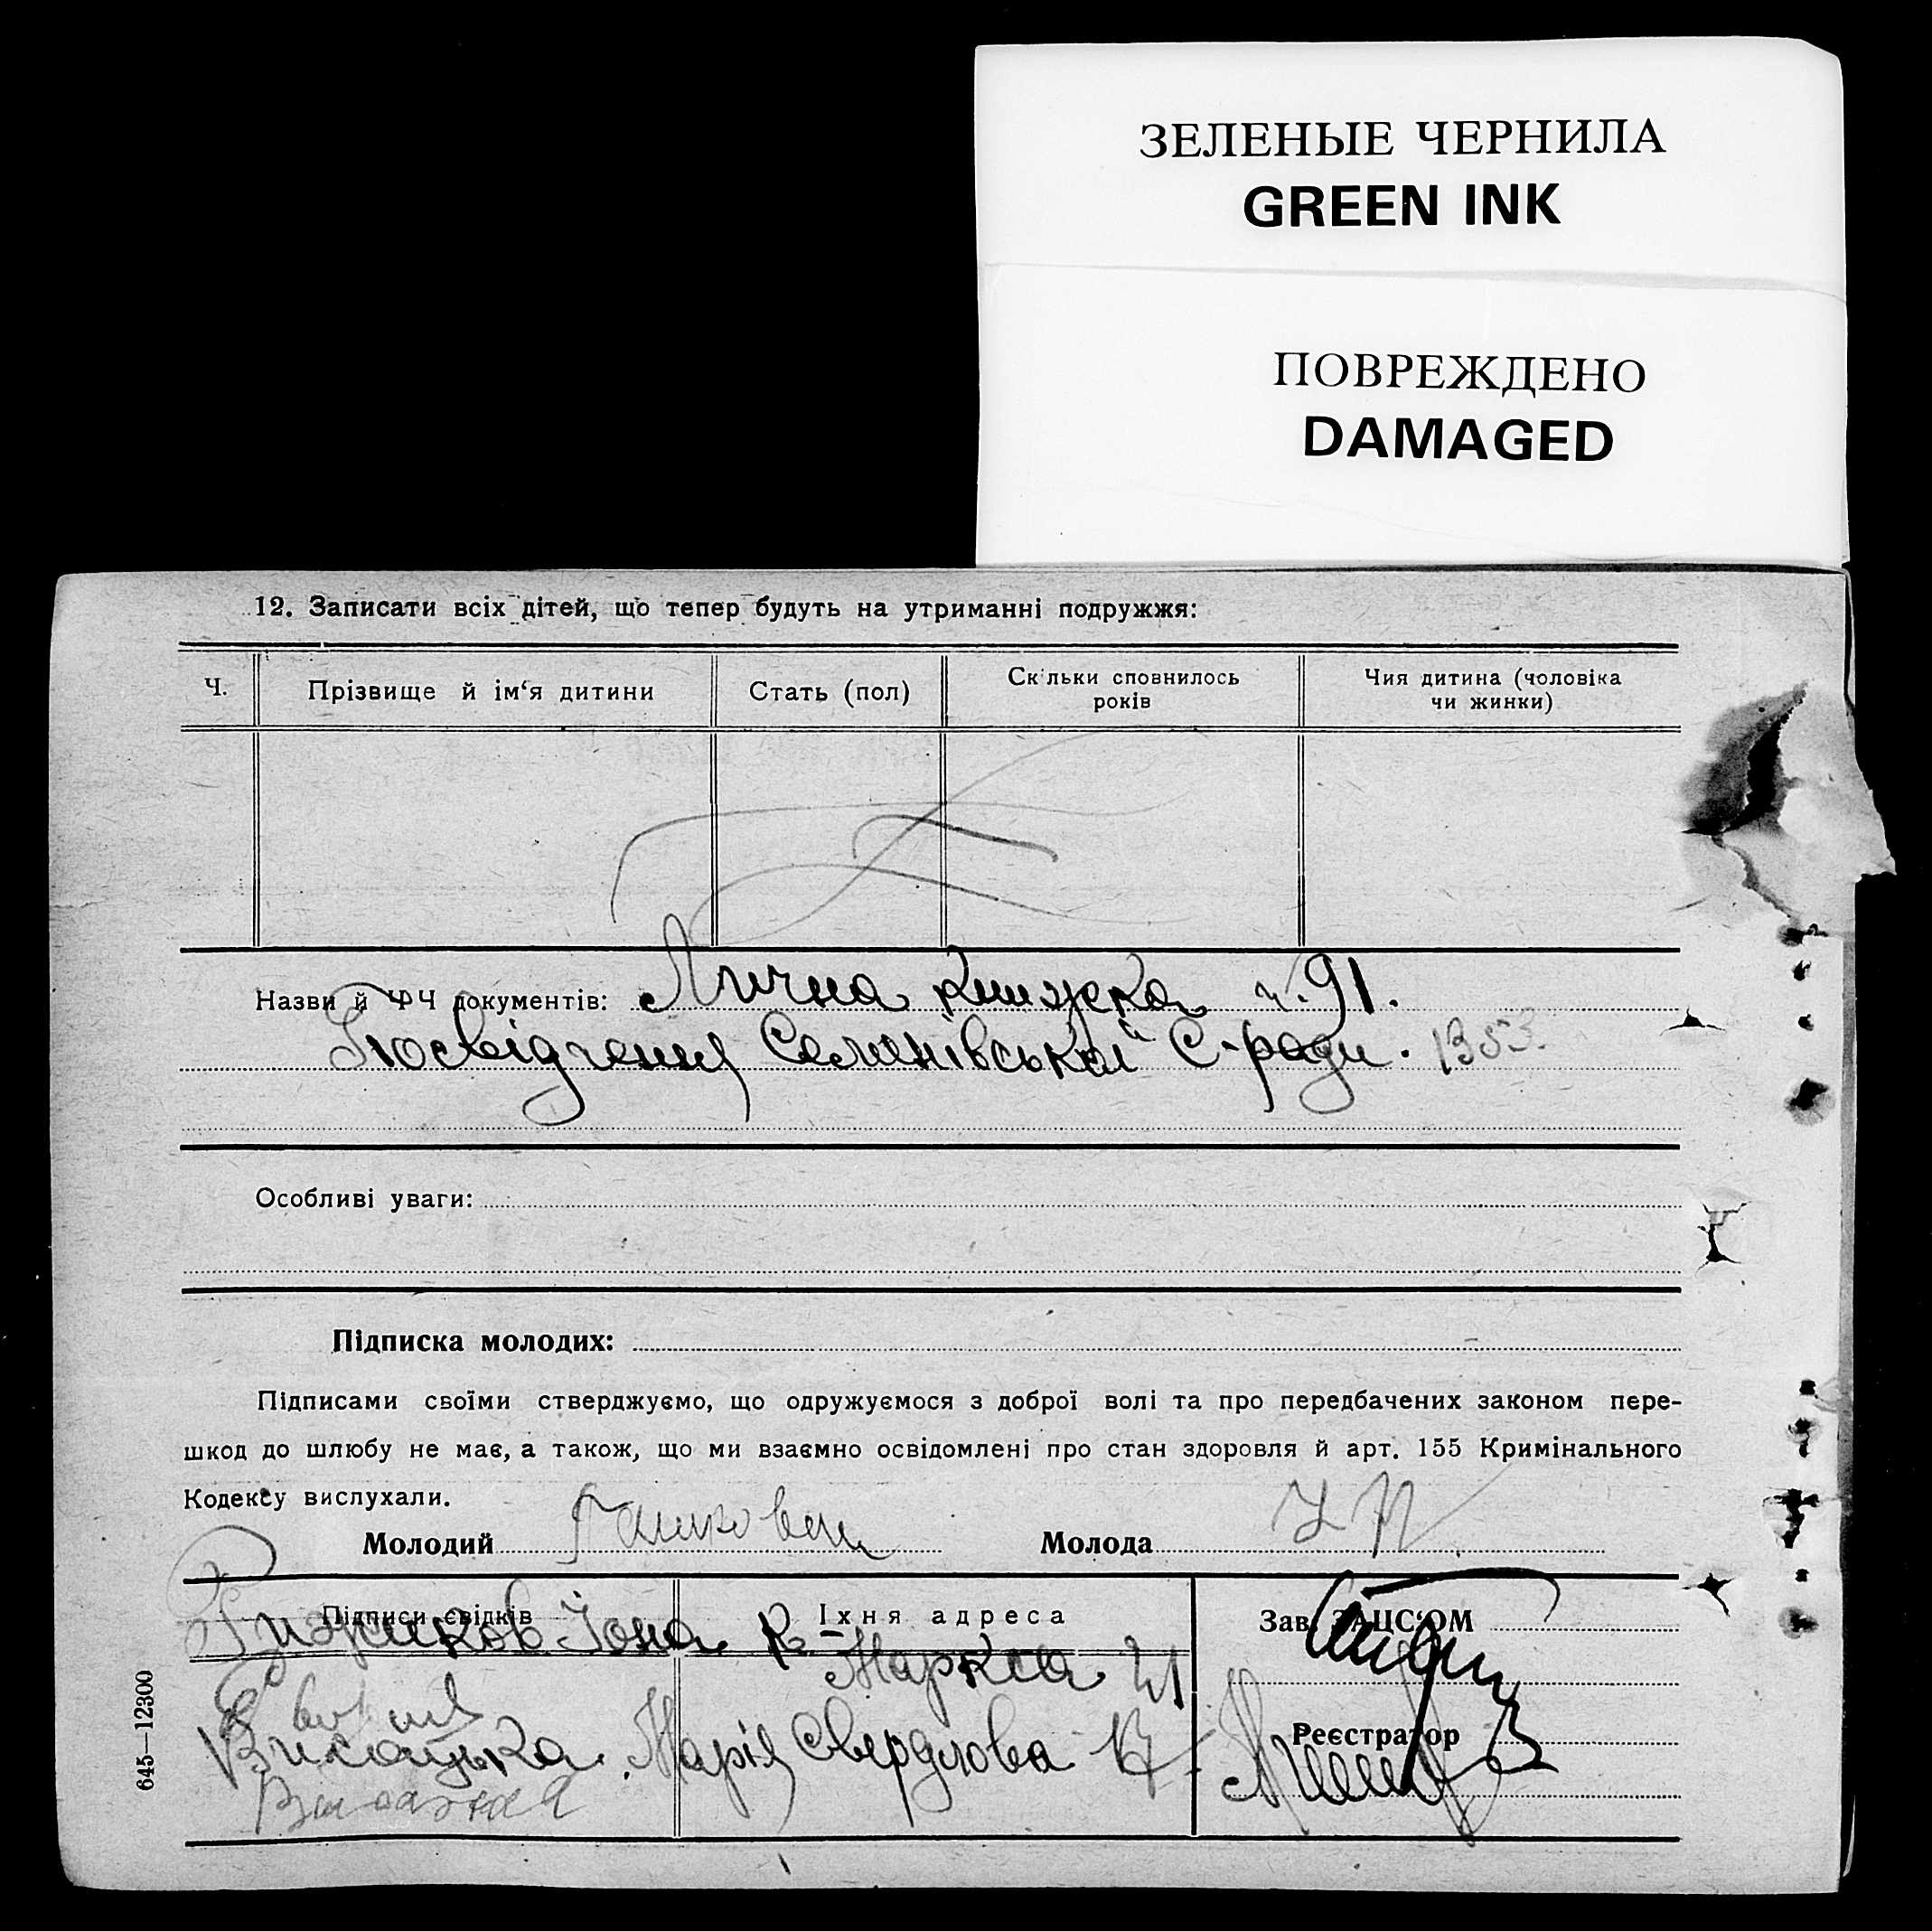 ЗЕЛЕНЫЕ ЧЕРНИЛА
GREEN INK
ПОВРЕЖДЕНО
DAMAGED
12. Записати всіх дітей, що тепер будуть на утриманні подружжя:
Ч.
Прізвище й ім‘я дитини
Стать (пол)
Скільки сповнилось
років
Чия дитина (чоловіка
чи жинки)
Назви й ЧЧ документів: Лична книжка н. 91.
Посвідчення Семенівської С-ради. 1353.
Особливі уваги:
Підписка молодих:
Підписами своїми стверджуємо, що одружуємося з доброї волі та про передбачених законом пере-
шкод до шлюбу не має, а також, що ми взаємно освідомлені про стан здоровля й арт. 155 Кримінального
Кодексу вислухали.
Молодий
Молода
Підписи свідків
Їхня адреса
Зав. ЗАЦС‘ОМ
Рижиков Іона К-Маркса 21
Реєстратор
Висоцька Марія Свердлова 17
645—12300